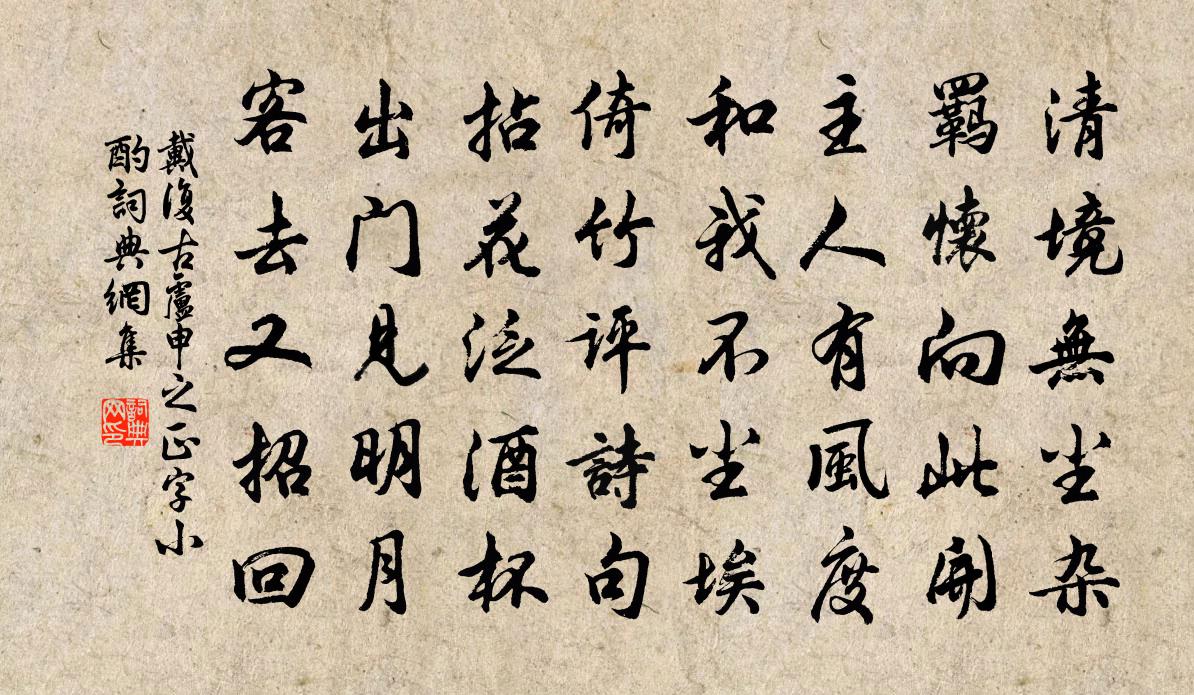 清境無尘杂
羈懷向此開
主人有風度
和我不尘埃
倚竹评詩句
拈花泛酒杯
出门見明月
客去又招回
戴復古盧申之正字小
酌詞典網集
詞典
网印